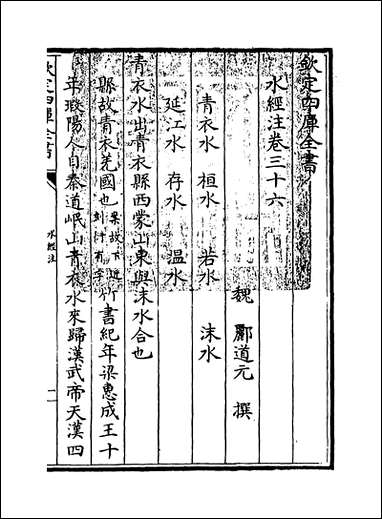 欽定四庫全書
水經注卷三十六
魏 酈道元 撰
青衣水 桓水 若水 沬水
延江水 存水 温水
青衣水出青衣縣西蒙山東與沬水合也
縣故青衣羌國也案故下近刻衍有字竹書紀年梁惠成王十
年瑕陽人自秦道岷山青衣水來歸漢武帝天漢四
欽定四庫全書
水經注